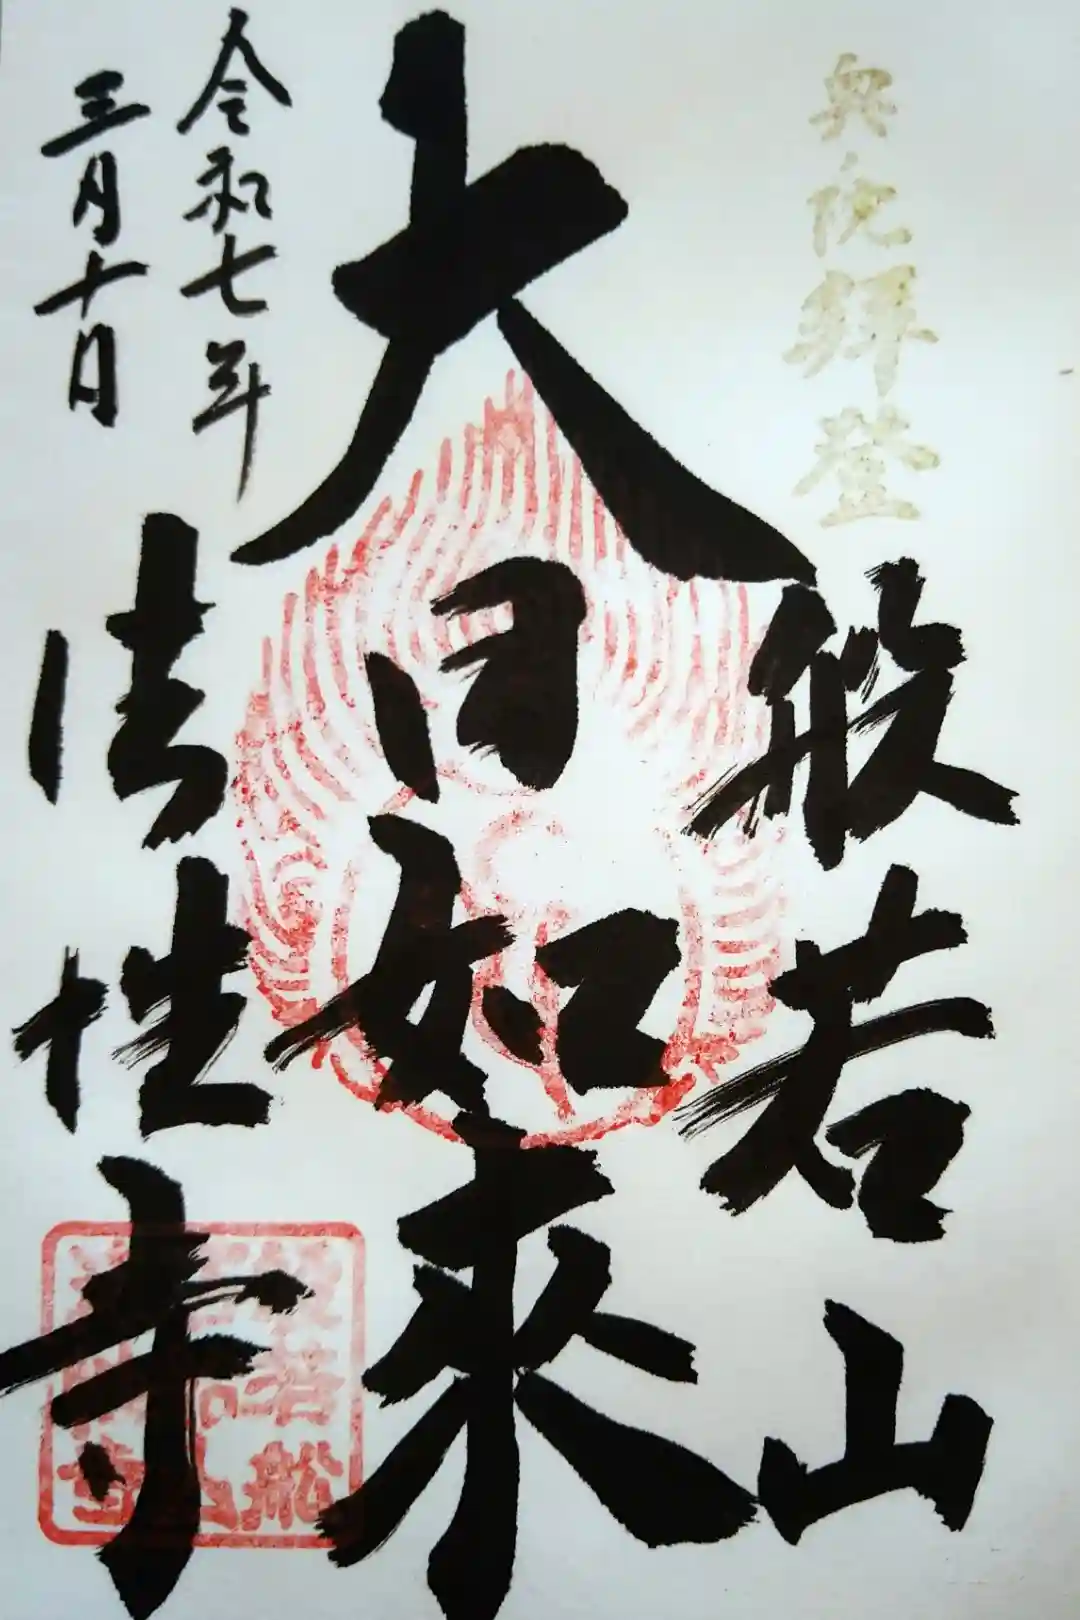 奥院拝登
般若山
大日如来
令和七年
三月十日
法性寺